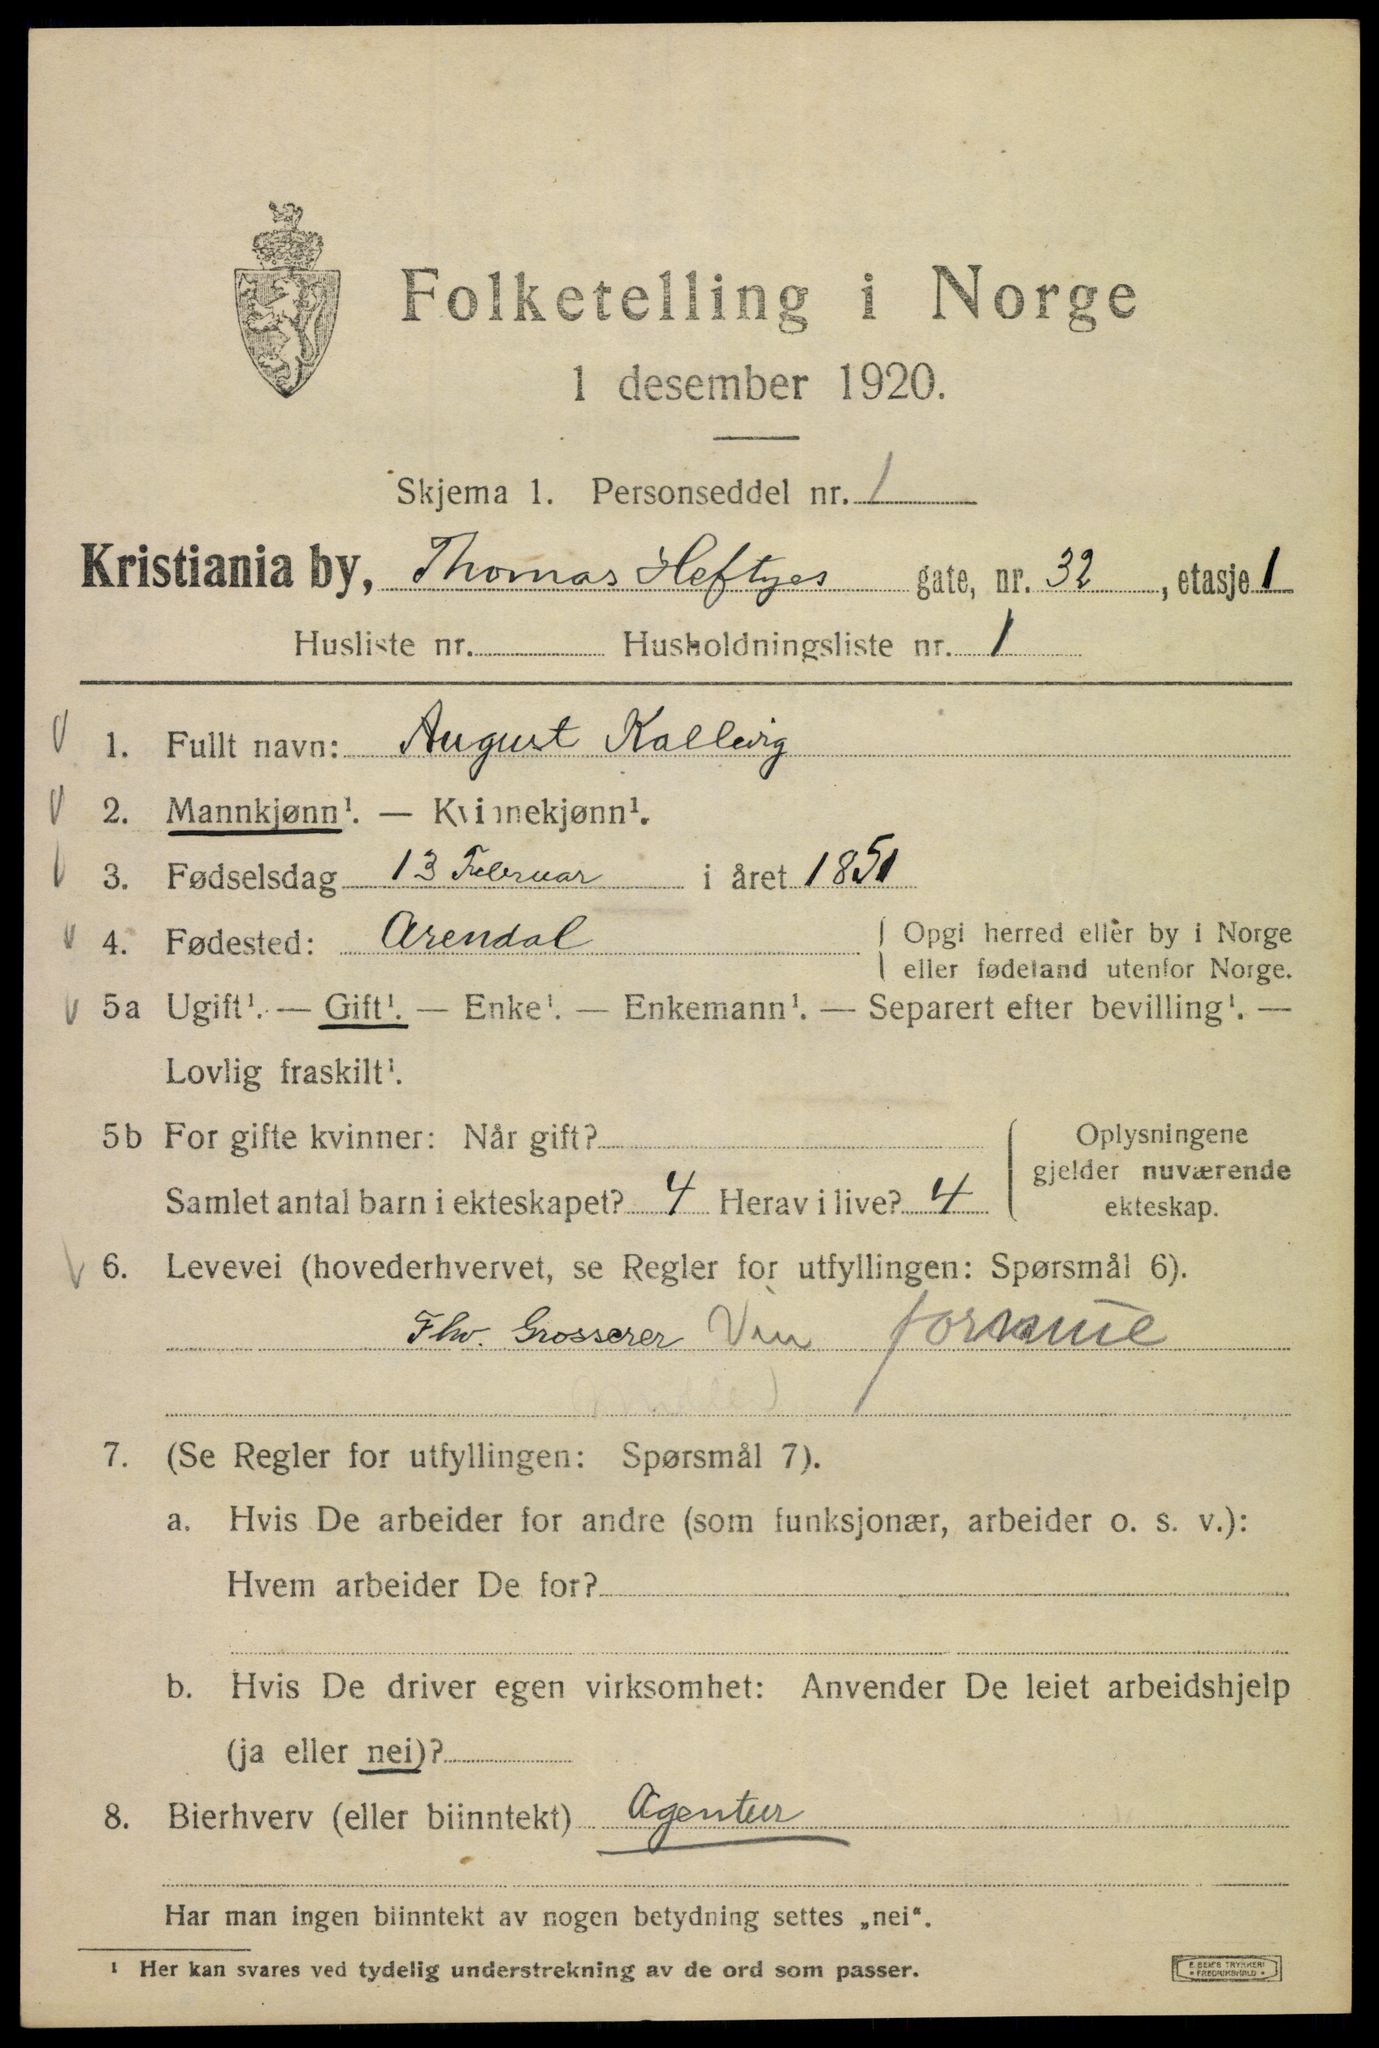 Folketelling i Norge
1 desember 1920.
Skjema 1. Personseddel nr. 1
Kristiania by, Thomas Heftyes gate, nr. 32, etasje 1
Husliste nr. Husholdningsliste nr. 1
1. Fullt navn: August Kallevig
2. Mannkjønn¹. — Kvinnekjønn¹.
3. Fødselsdag 13 Februar i året 1851
4. Fødested: Arendal
Opgi herred eller by i Norge
eller fødeland utenfor Norge.
5a Ugift¹. — Gift¹. — Enke¹. — Enkemann¹. — Separert efter bevilling¹. —
Lovlig fraskilt¹.
5b For gifte kvinner: Når gift?
Samlet antal barn i ekteskapet? 4 Herav i live? 4
Oplysningene
gjelder nuværende
ekteskap.
6. Levevei (hovederhvervet, se Regler for utfyllingen: Spørsmål 6).
Fhv. Grosserer Vin formue
7. (Se Regler for utfyllingen: Spørsmål 7).
a. Hvis De arbeider for andre (som funksjonær, arbeider o. s. v.):
Hvem arbeider De for?
b. Hvis De driver egen virksomhet: Anvender De leiet arbeidshjelp
(ja eller nei)?
8. Bierhverv (eller biinntekt) Agentur
Har man ingen biinntekt av nogen betydning settes „nei“.
¹ Her kan svares ved tydelig understrekning av de ord som passer.